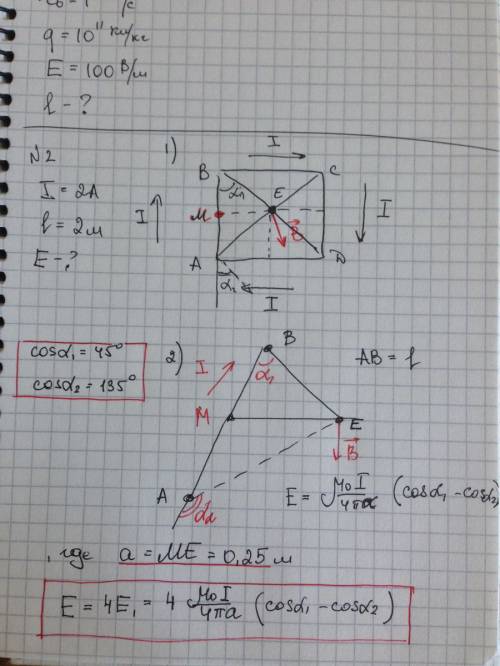 q = 10¹¹ кл/кг
E = 100 В/м
l - ?
N2
I = 2A
l = 2м
E - ?
1)
I
B
C
α₁
E
I
M
B⃗
I
A
D
α₂
I
cosα₁ = 45°
cosα₂ = 135°
2)
B
I
α₁
AB = l
M
E
B⃗
A
α₂
E = μ₀I/4πa (cosα₁ - cosα₂)
, где a = ME = 0,25 м
E = 4E₁ = 4 μ₀I/4πa (cosα₁ - cosα₂)